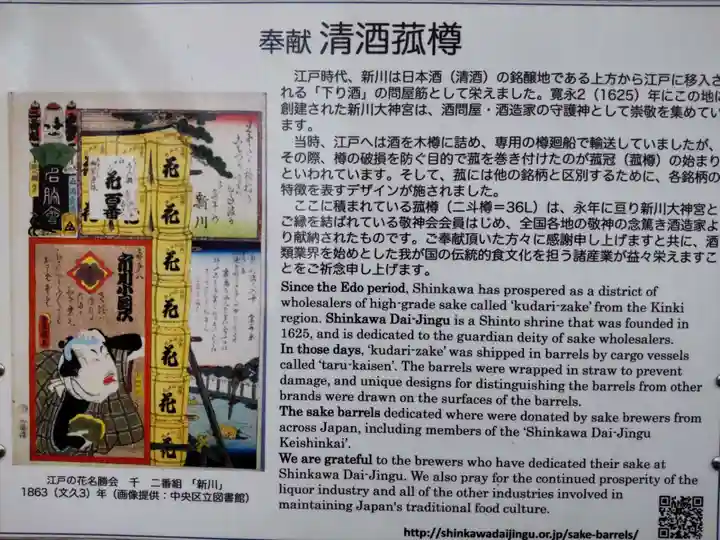 奉献 清酒菰樽
江戸時代、新川は日本酒（清酒）の銘醸地である上方から江戸に移入さ
れる「下り酒」の問屋筋として栄えました。寛永2（1625）年にこの地に
創建された新川大神宮は、酒問屋・酒造家の守護神として崇敬を集めてい
ます。
当時、江戸へは酒を木樽に詰め、専用の樽廻船で輸送していましたが、
その際、樽の破損を防ぐ目的で菰を巻き付けたのが菰冠（菰樽）の始まり
といわれています。そして、菰には他の銘柄と区別するために、各銘柄の
特徴を表すデザインが施されました。
ここに積まれている菰樽（二斗樽＝36L）は、永年に亘り新川大神宮と
ご縁を結ばれている敬神会会員はじめ、全国各地の敬神の念篤き酒造家よ
り献納されたものです。ご奉献頂いた方々に感謝申し上げますと共に、酒
類業界を始めとした我が国の伝統的食文化を担う諸産業が益々栄えますこ
とをご祈念申し上げます。
Since the Edo period, Shinkawa has prospered as a district of
wholesalers of high-grade sake called 'kudari-zake' from the Kinki
region. Shinkawa Dai-Jingu is a Shinto shrine that was founded in
1625, and is dedicated to the guardian deity of sake wholesalers.
In those days, 'kudari-zake' was shipped in barrels by cargo vessels
called 'taru-kaisen'. The barrels were wrapped in straw to prevent
damage, and unique designs for distinguishing the barrels from other
brands were drawn on the surfaces of the barrels.
The sake barrels dedicated where were donated by sake brewers from
across Japan, including members of the 'Shinkawa Dai-Jingu
Keishinkai'.
We are grateful to the brewers who have dedicated their sake at
Shinkawa Dai-Jingu. We also pray for the continued prosperity of the
liquor industry and all of the other industries involved in
maintaining Japan's traditional food culture.
http://shinkawadaijingu.or.jp/sake-barrels/
花
花
花
花
花
花
花
新川
江戸の花名勝会 千 二番組 「新川」
1863（文久3）年（画像提供：中央区立図書館）